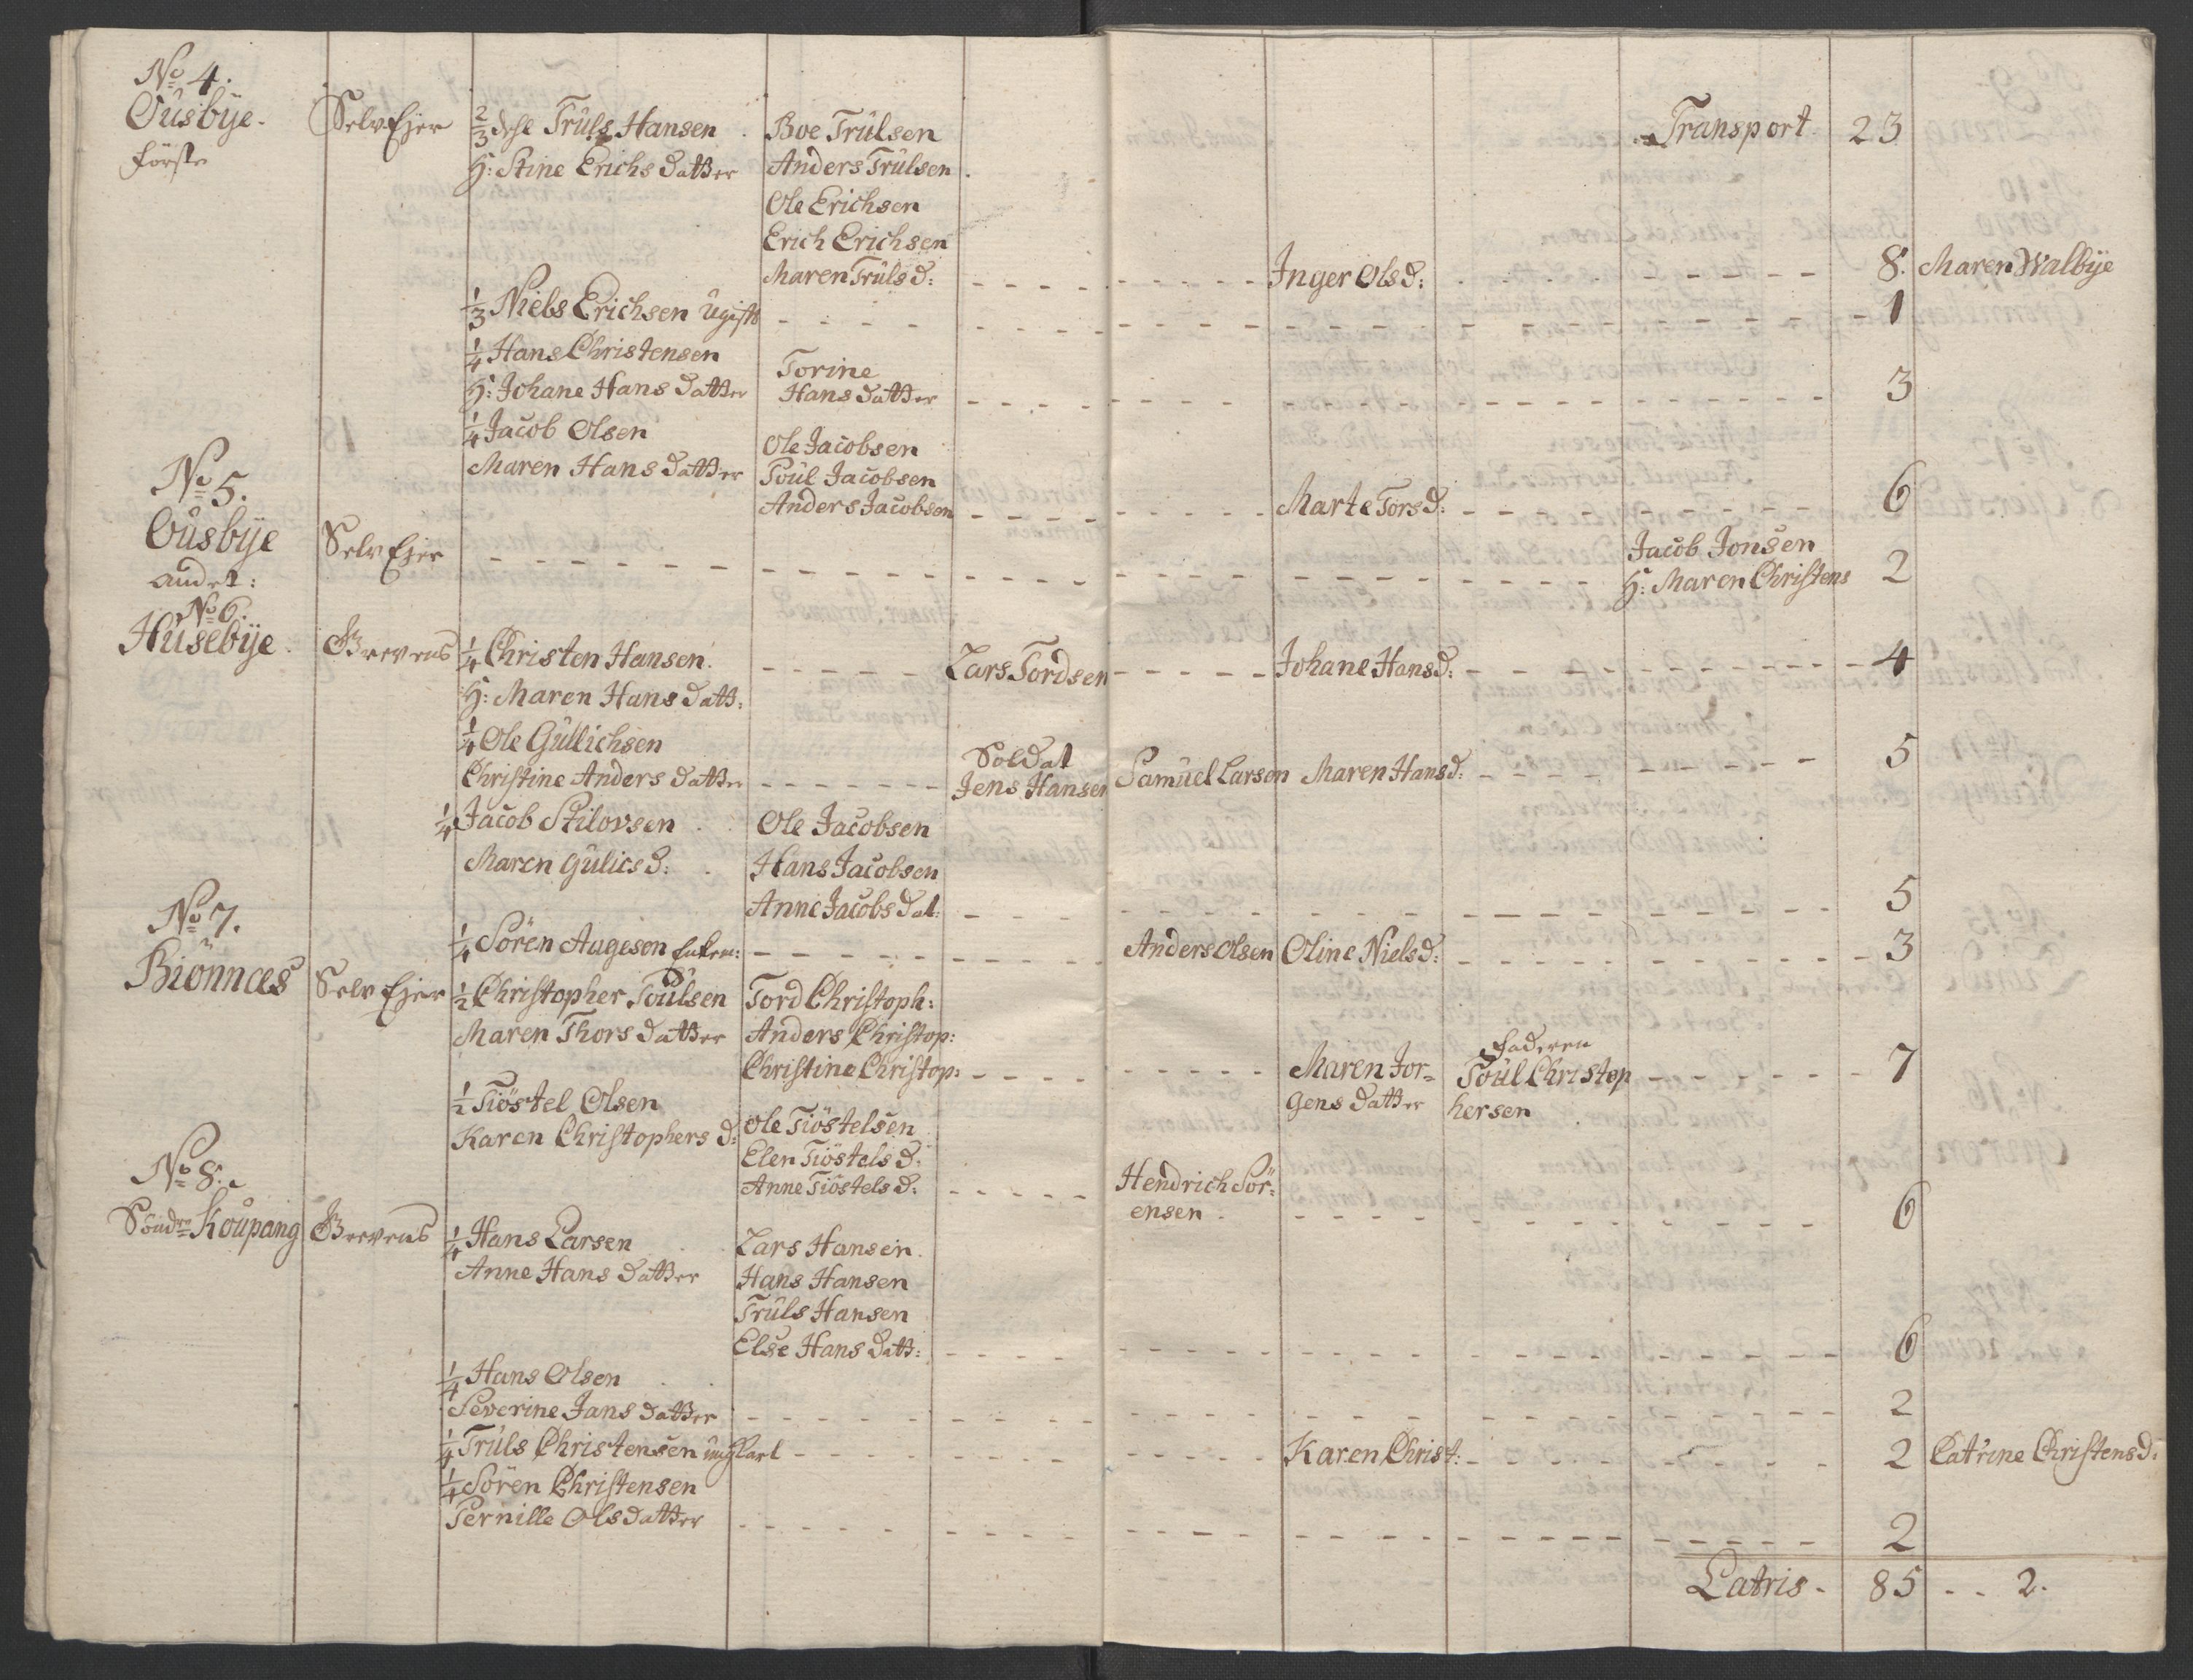 No 4.
Oüsbÿe.
förste
Selv Ejer
2/3 dehl Trüls Hansen
H: Stine Erichs Datter
Boe Trülsen
Anders Trülsen
Ole Erichsen
Erich Erichsen
Maren Trüls d:
Transport 23
Inger Ols d: 8. Maren Walbÿe
1/3 Niels Erichsen Ugift 1
1/4 Hans Christensen
H: Johane Hans Datter
Torine
Hans Datter 3
1/4 Jacob Olsen
Maren Hans Datter
Ole Jacobsen
Poül Jacobsen
Anders Jacobsen
Marte Tors d: 6
No 5.
Oüsbÿe
andet:
Selv Ejer
Jacob Jonsen
H: Maren Christens 2
No 6.
Hüsebÿe
Grevens
1/4 Christen Hansen.
H: Maren Hans Datt:
Lars Tordsen
Johane Hans d: 4
1/4 Ole Güllichsen
Christine Anders Datter
Soldat
Jens Hansen
Samüel Larsen
Maren Hans d: 5
1/4 Jacob Stilovsen
Maren Gülics d:
Ole Jacobsen
Hans Jacobsen
Anne Jacobs Dat: 5
1/4 Sören Augesen Enkem:
Anders Olsen
Oline Niels d: 3
No 7.
Biönnæs
Selv Ejer
1/2 Christopher Poülsen
Maren Thors Datter
Tord Christoph:
Anders Christop:
Christine Christop:
Maren Jor-
gens Datter
Faderen
Poül Christop
hersen 7
1/2 Tiöstel Olsen
Karen Christophers d:
Ole Tiöstelsen
Elen Tiöstels d:
Anne Tiöstels d:
Hendrich Sör-
ensen 6
No 8.
Söndre Koüpang
Grevens
1/4 Hans Larsen
Anne Hans Datter
Lars Hansen
Hans Hansen
Trüls Hansen
Else Hans Datt: 6
1/4 Hans Olsen
Severine Jans Datter 2
1/4 Trüls Christensen ungkarl
Karen Christ: 2 Catrine Christens d:
1/4 Sören Christensen
Pernille Ols Datter 2
Latris - 85 - - 2.